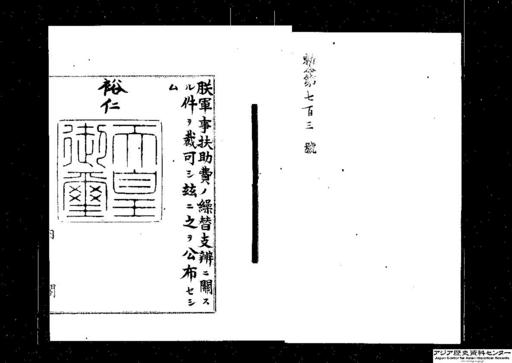 勅令第七百三號
朕軍事扶助費ノ繰替支辨ニ關ス
ル件ヲ裁可シ玆ニ之ヲ公布セシ
ム
裕仁
天皇
御璽
内閣
アジア歴史資料センター
Japan Center for Asian Historical Records